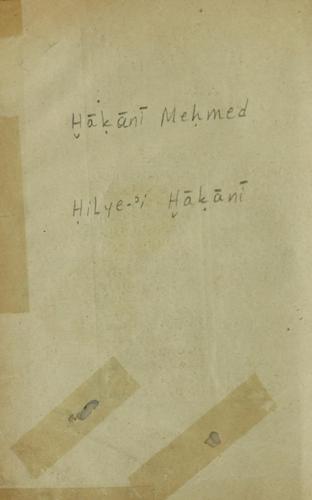 Ḫāḳānī Meḥmed
Ḥilye-ʾi Ḫāḳānī